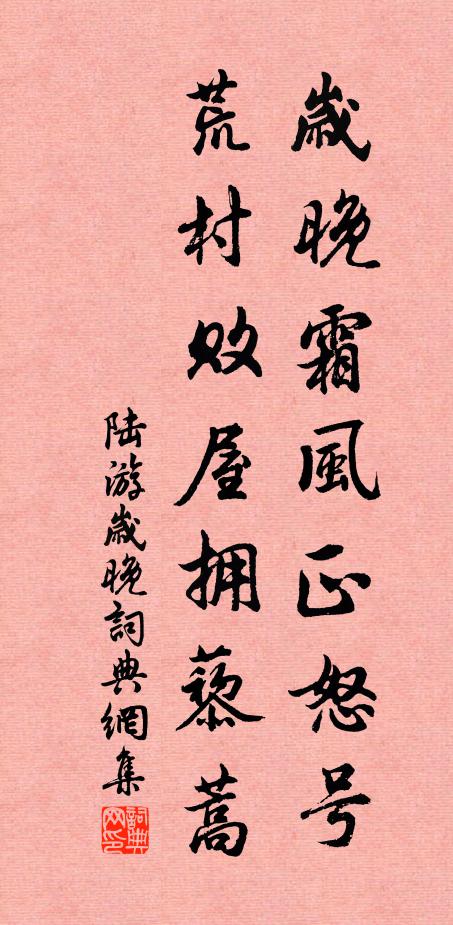 歲晚霜風正怒号
荒村败屋拥藜蒿
陆游歲晚詞典網集
詞典网印